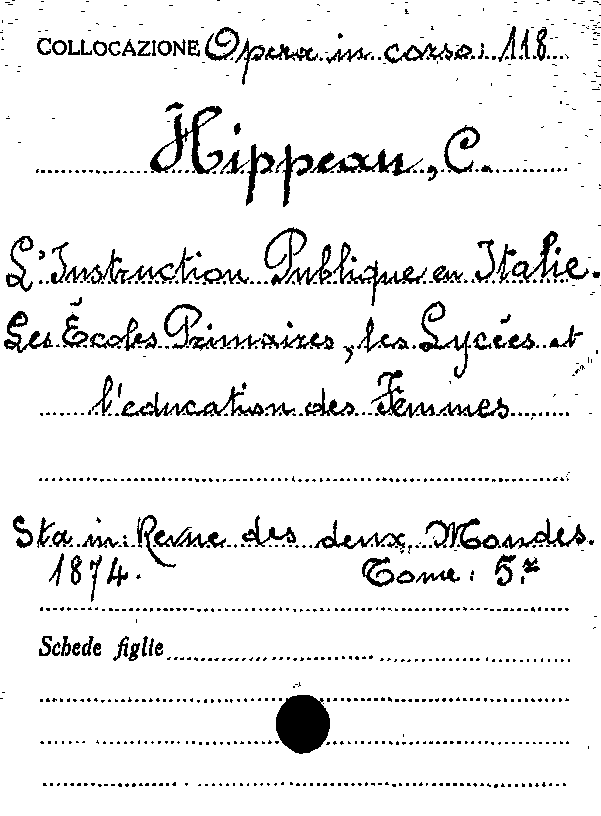 COLLOCAZIONE Opera in corso: 118
Hippeau, C.
L'Instruction Publique en Italie.
Les Écoles Primaires, les Lycées et
l'education des Femmes
Sta in: Revue des deux Mondes.
1874. Tome: 5.º
Schede figlie